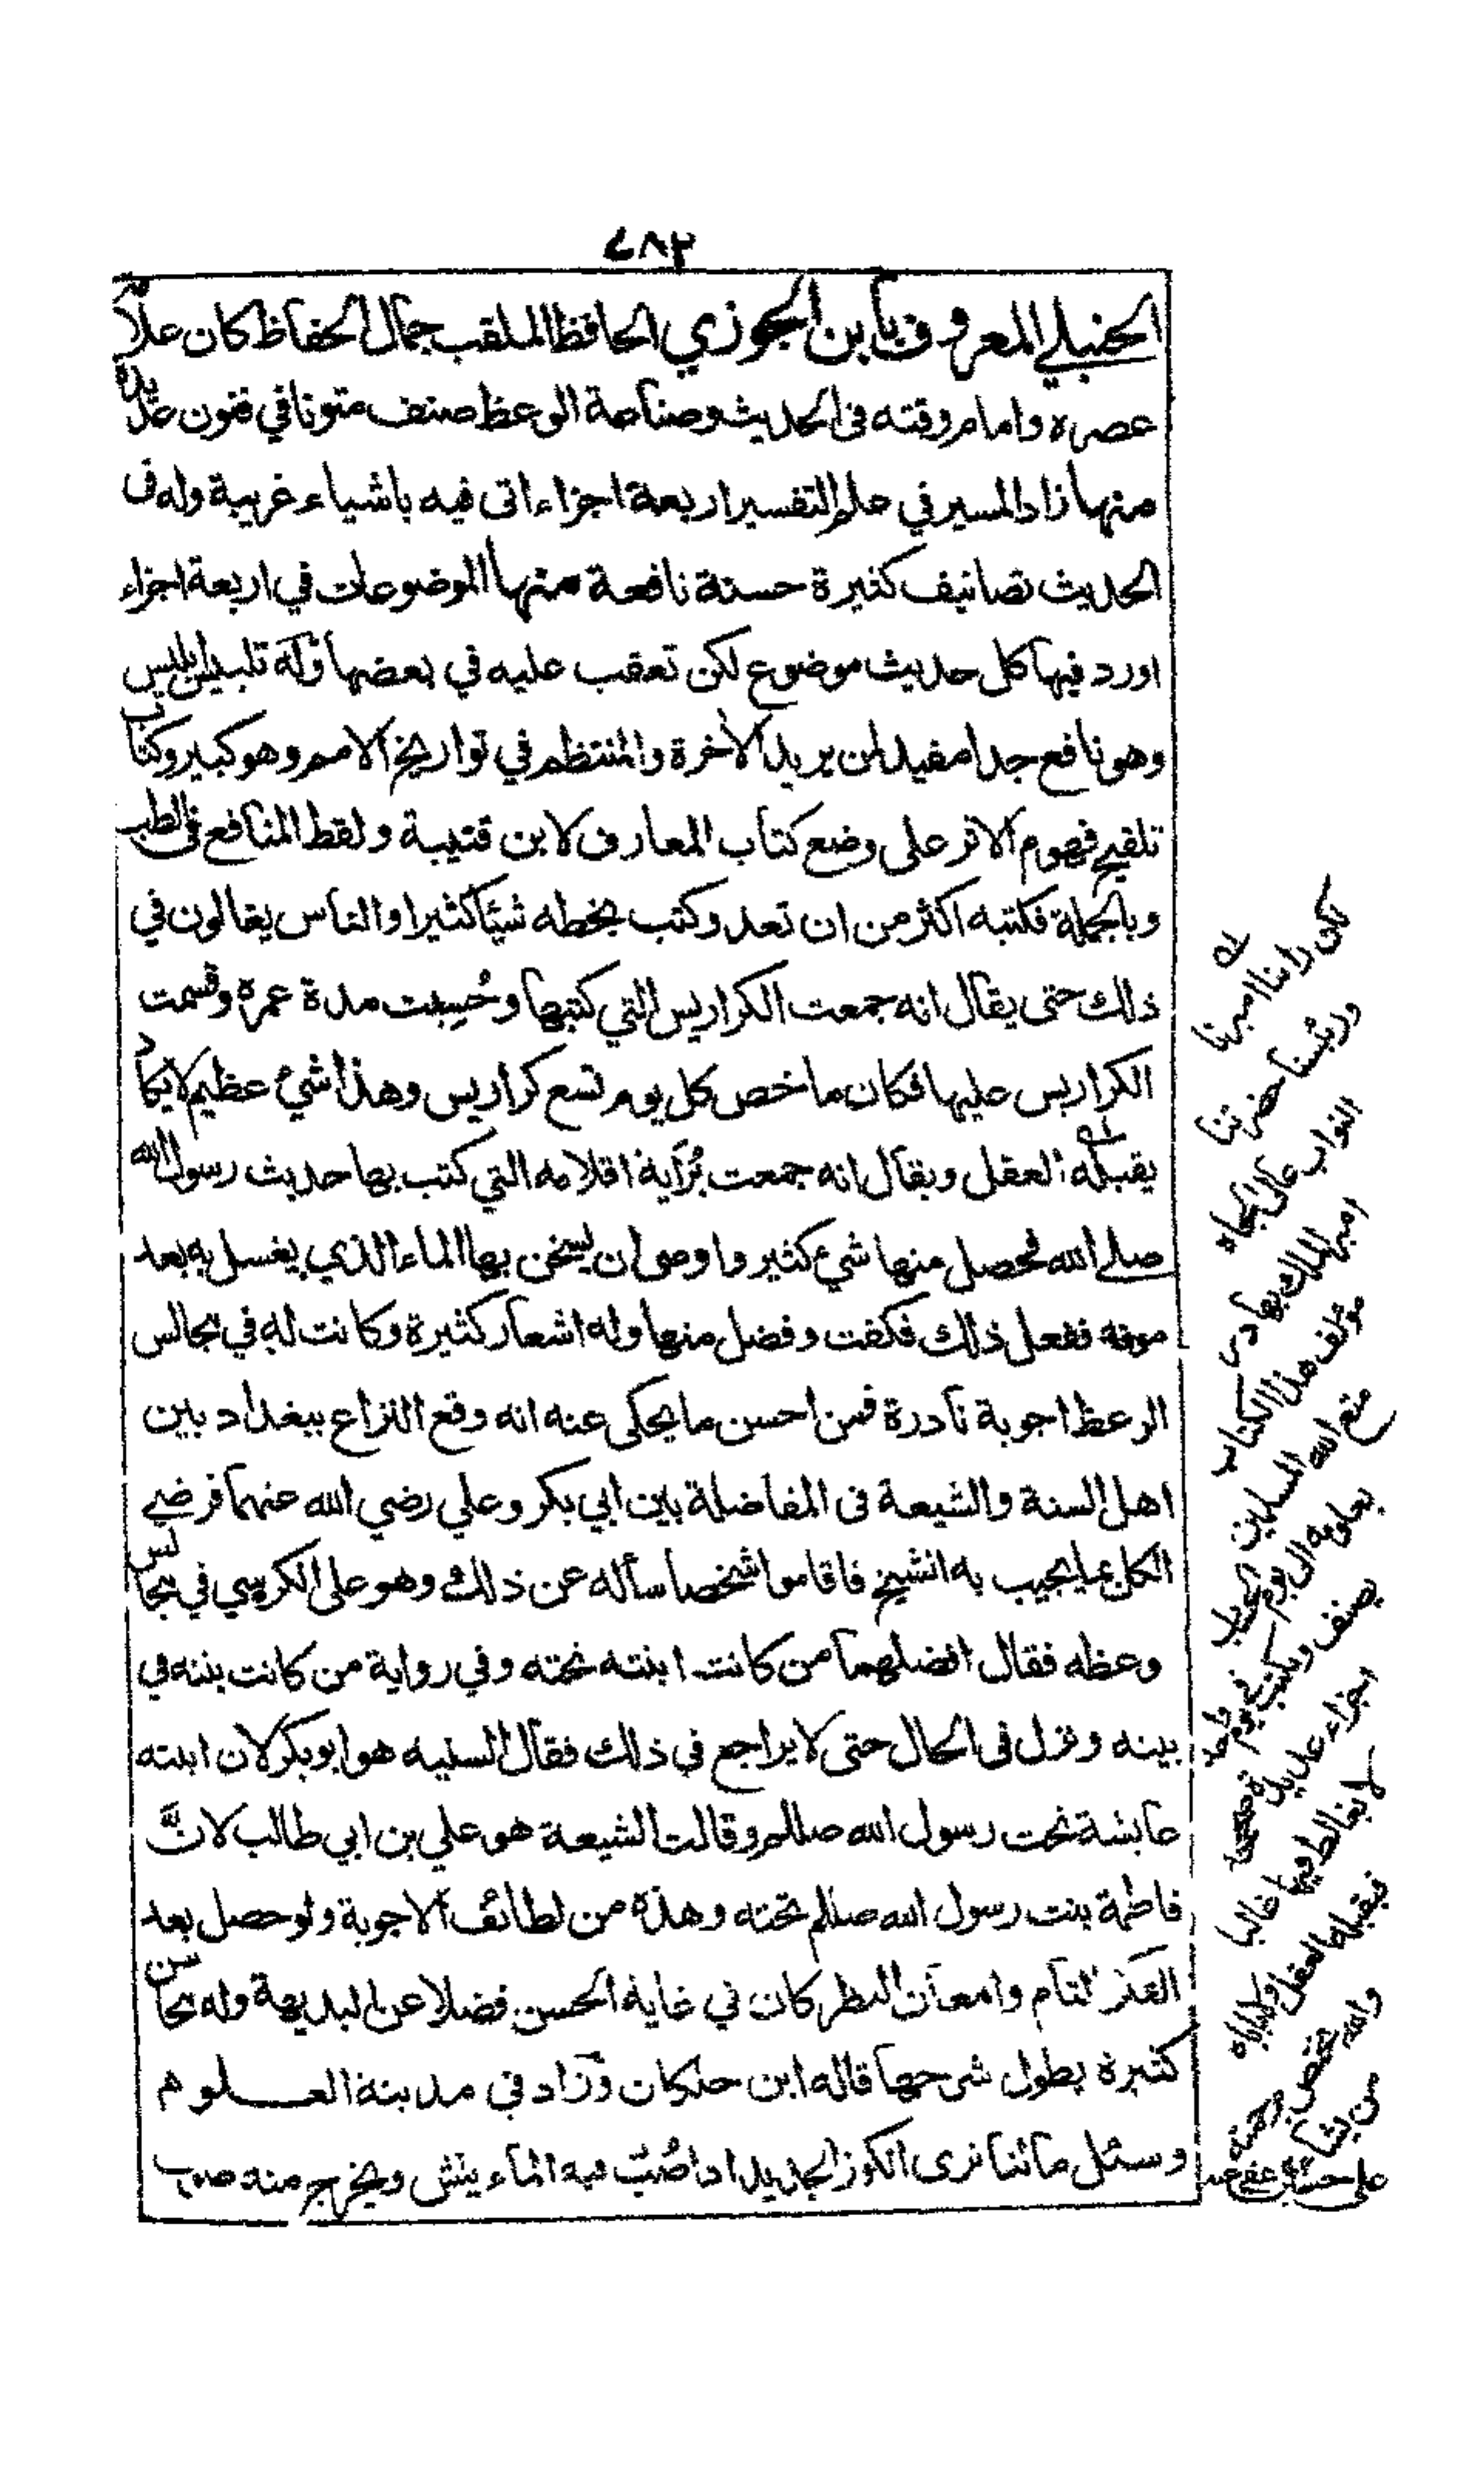 ٤٨٢
الحنبلي المعروف بابن الجوزي الحافظ الملقب جمال الحفاظ كان علامة
عصره وامام وقته فى الحديث وصناعة الوعظ صنف متونا في فنون عديدة
منها زاد المسير في علم التفسير اربعة اجزاء اتى فيه باشياء غريبة وله في
الحديث تصانيف كثيرة حسنة نافعة منها الموضوعات في اربعة اجزاء
اورد فيها كل حديث موضوع لكن تعقب عليه في بعضها وله تلبيس ابليس
وهو نافع جدا مفيد لمن يريد الآخرة والمنتظم في تواريخ الامم وهو كبير وكتاب
تلقيح فهوم الاثر على وضع كتاب المعارف لابن قتيبة ولقط المنافع فى الطب
وبالجملة فكتبه اكثر من ان تعد وكتب بخطه شيئا كثيرا والناس يغالون في
ذلك حتى يقال انه جمعت الكراريس التي كتبها وحُسِبت مدة عمره وقسمت
الكراريس عليها فكان ما خص كل يوم تسع كراريس وهذا شيئ عظيم لا يكاد
يقبله العقل ويقال انه جمعت بُراية اقلامه التي كتب بها حديث رسول الله
صلى الله فحصل منها شيئ كثير واوصى ان يسخن بها الماء الذي يغسل به بعد
موته ففعل ذلك فكفت وفضل منها وله اشعار كثيرة وكانت له في مجالس
الوعظ اجوبة نادرة فمن احسن ما يحكى عنه انه وقع النزاع ببغداد بين
اهل السنة والشيعة فى المفاضلة بين ابي بكر وعلي رضي الله عنهما فرضي
الكل بما يجيب به الشيخ فاقاموا شخصا سأله عن ذلك وهو على الكرسي في مجالس
وعظه فقال افضلهما من كانت ابنته تحته وفي رواية من كانت بنته في
بيته ونزل فى الحال حتى لا يراجع في ذلك فقال السنية هو ابو بكر لان ابنته
عايشة تحت رسول الله صللم وقالت الشيعة هو علي بن ابي طالب لانَّ
فاطمة بنت رسول الله صللم تحته وهذه من لطائف الاجوبة ولو حصل بعد
الفكر التام وامعان النظر كان في غاية الحسن فضلا عن البديهة وله محاسن
كثيرة يطول شرحها قاله ابن خلكان وزاد في مدينة العلوم
وسئل مالنا نرى الكوز الجديد اذا صُبّ فيه الماء ينش ويخرج منه صوت
له
لكن راينا اميرنا
ورئيسنا حضرتنا
النواب عالى الجاه
امير الملك بهادر
مؤلف هذا الكتاب
متع الله المسلمين
يصنف ويكتب في يوم واحد
اجزاء عديدة
لا يغالط فيها غالبا
فيقبلها العقل
والله يختص برحمته
من يشاء
على حسن عفى عنه